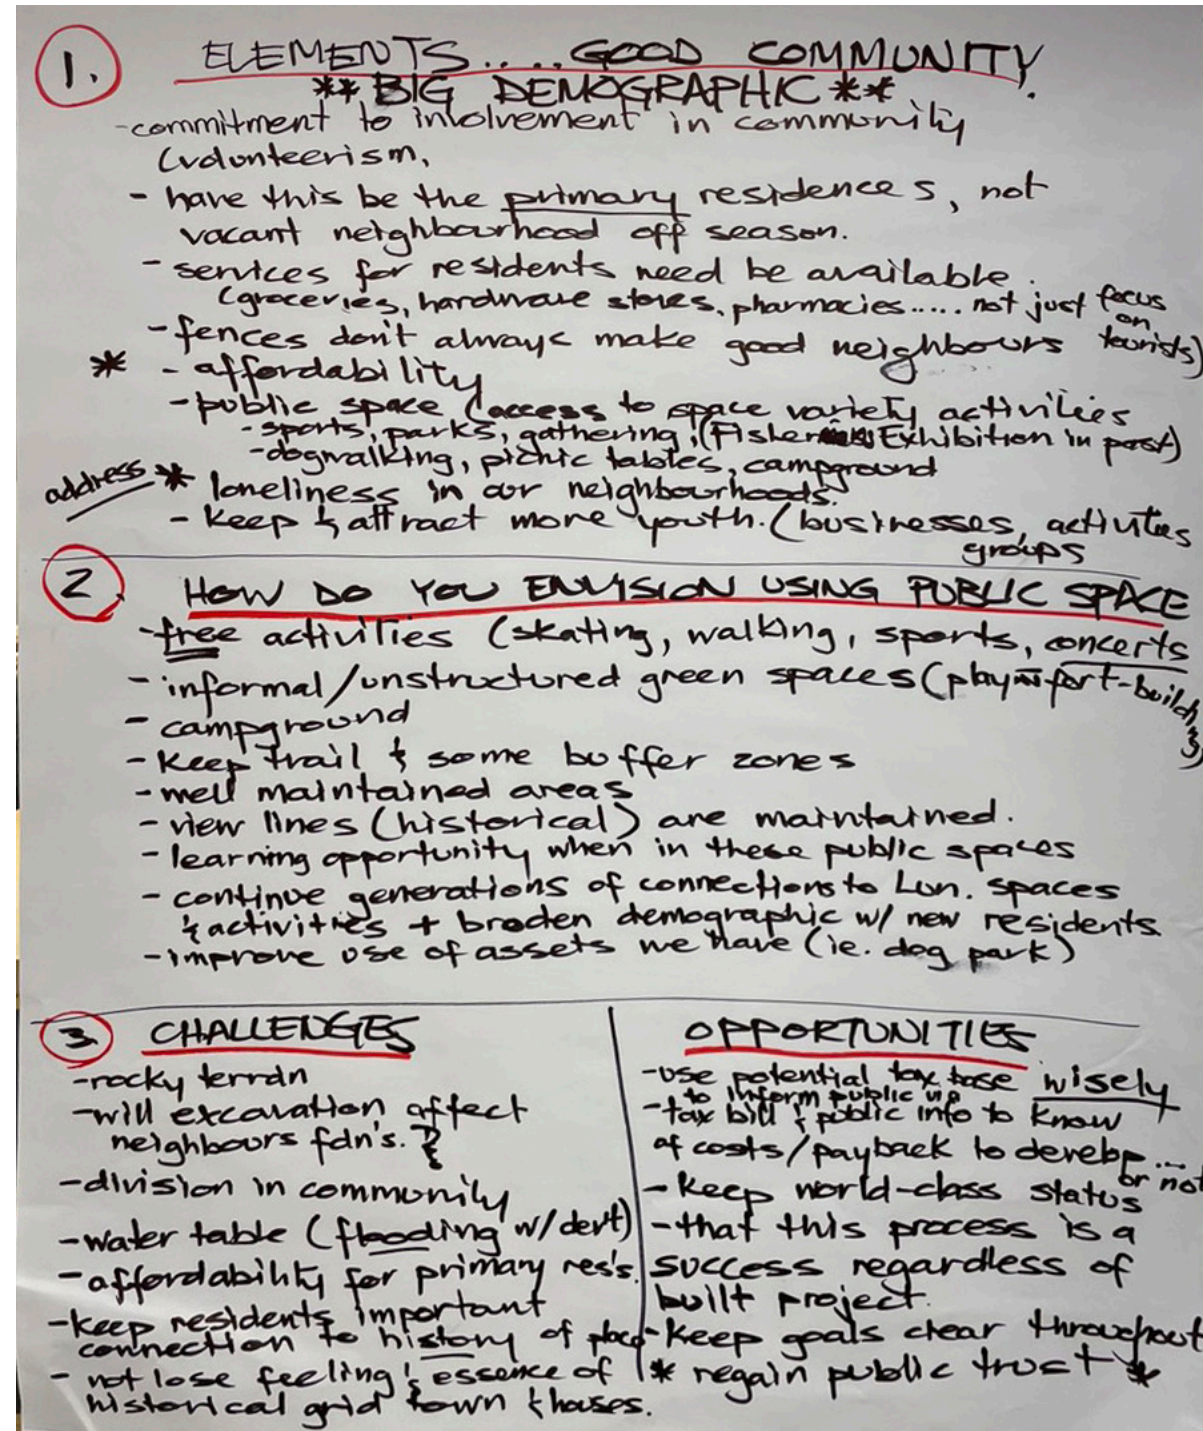 1. ELEMENTS.....GOOD COMMUNITY.
** BIG DEMOGRAPHIC **
-commitment to involvement in community
(volunteerism,
- have this be the primary residences, not
vacant neighbourhood off season.
- services for residents need be available.
(groceries, hardware stores, pharmacies..... not just focus
on
tourists)
- fences don't always make good neighbours
* - affordability
- public space (access to space variety activities
- sports, parks, gathering, (Fisheries Exhibition in past)
- dogwalking, picnic tables, campground
address * loneliness in our neighbourhoods.
- keep & attract more youth. (businesses, activities
groups
2. HOW DO YOU ENVISION USING PUBLIC SPACE
- free activities (skating, walking, sports, concerts
- informal/unstructured green spaces (play fort-build
- campground
- keep trail & some buffer zones
- well maintained areas
- view lines (historical) are maintained.
- learning opportunity when in these public spaces
- continue generations of connections to Lun. spaces
& activities + broden demographic w/ new residents.
- improve use of assets we have (ie. dog park)
3. CHALLENGES
- rocky terrain
- will excavation affect
neighbours fdn's. ?
- division in community
- water table (flooding w/ dev't)
- affordability for primary res's.
- keep residents important
connection to history of place
- not lose feeling & essence of
historical grid town & houses.
OPPORTUNITIES
- use potential tax base wisely
to inform public
- tax bill & public info to know
of costs/payback to develop....
or not
- keep world-class status
- that this process is a
success regardless of
built project.
- keep goals clear throughout
* regain public trust *